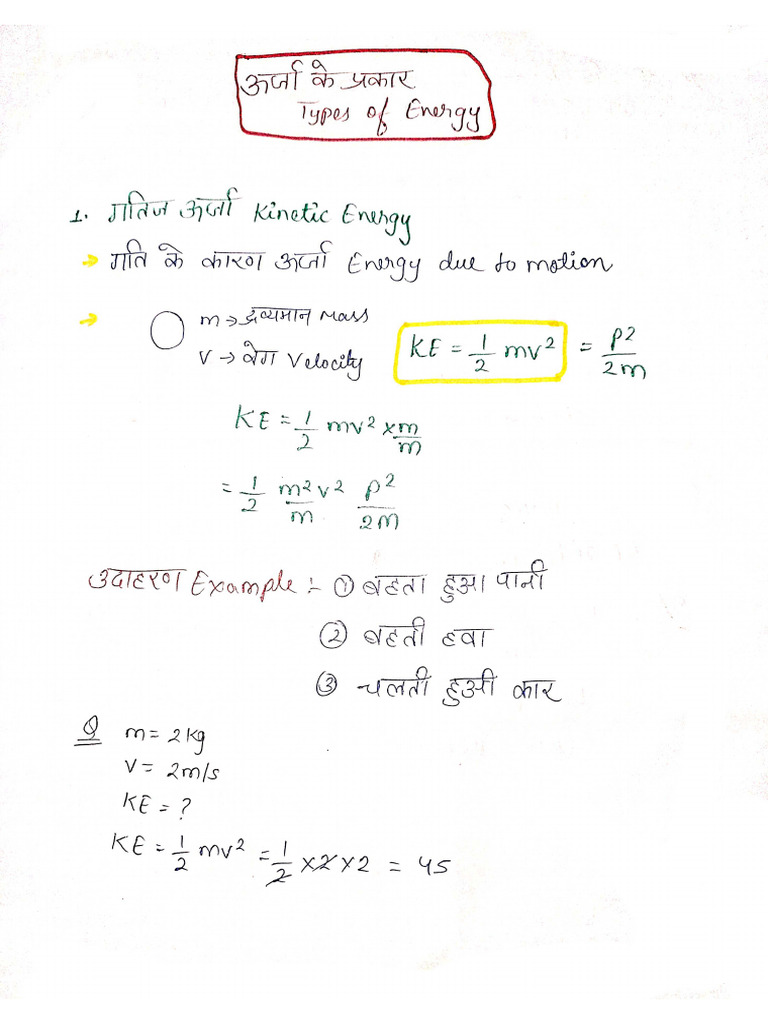 ऊर्जा के प्रकार
Types of Energy
1. गतिज ऊर्जा Kinetic Energy
→ गति के कारण ऊर्जा Energy due to motion
→ m → द्रव्यमान Mass
V → वेग Velocity
KE = 1/2 mv² = P²/2m
KE = 1/2 mv² × m/m
= 1/2 m²v²/m P²/2m
उदाहरण Example :- ① बहता हुआ पानी
② बहती हवा
③ चलती हुअी कार
Q m = 2kg
V = 2m/s
KE = ?
KE = 1/2 mv² = 1/2 × 2 × 2 = 45